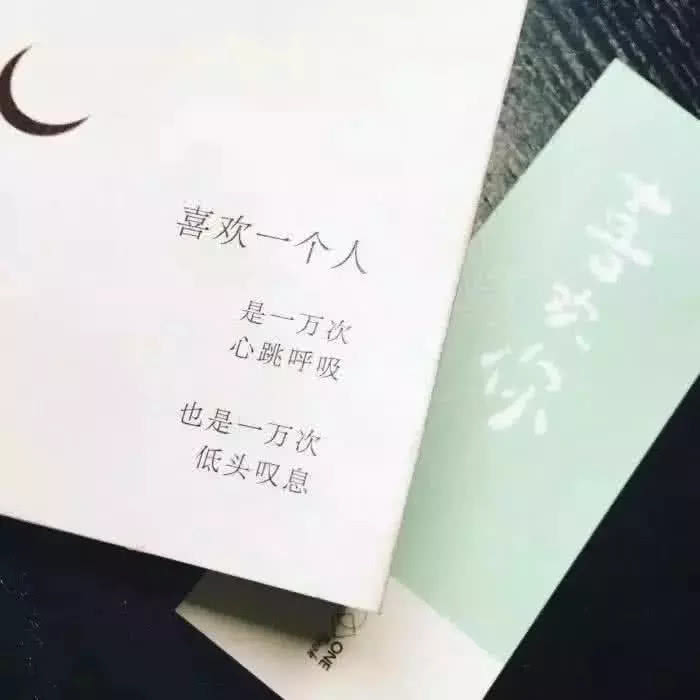 喜欢一个人
是一万次
心跳呼吸
也是一万次
低头叹息
喜欢你
ONE